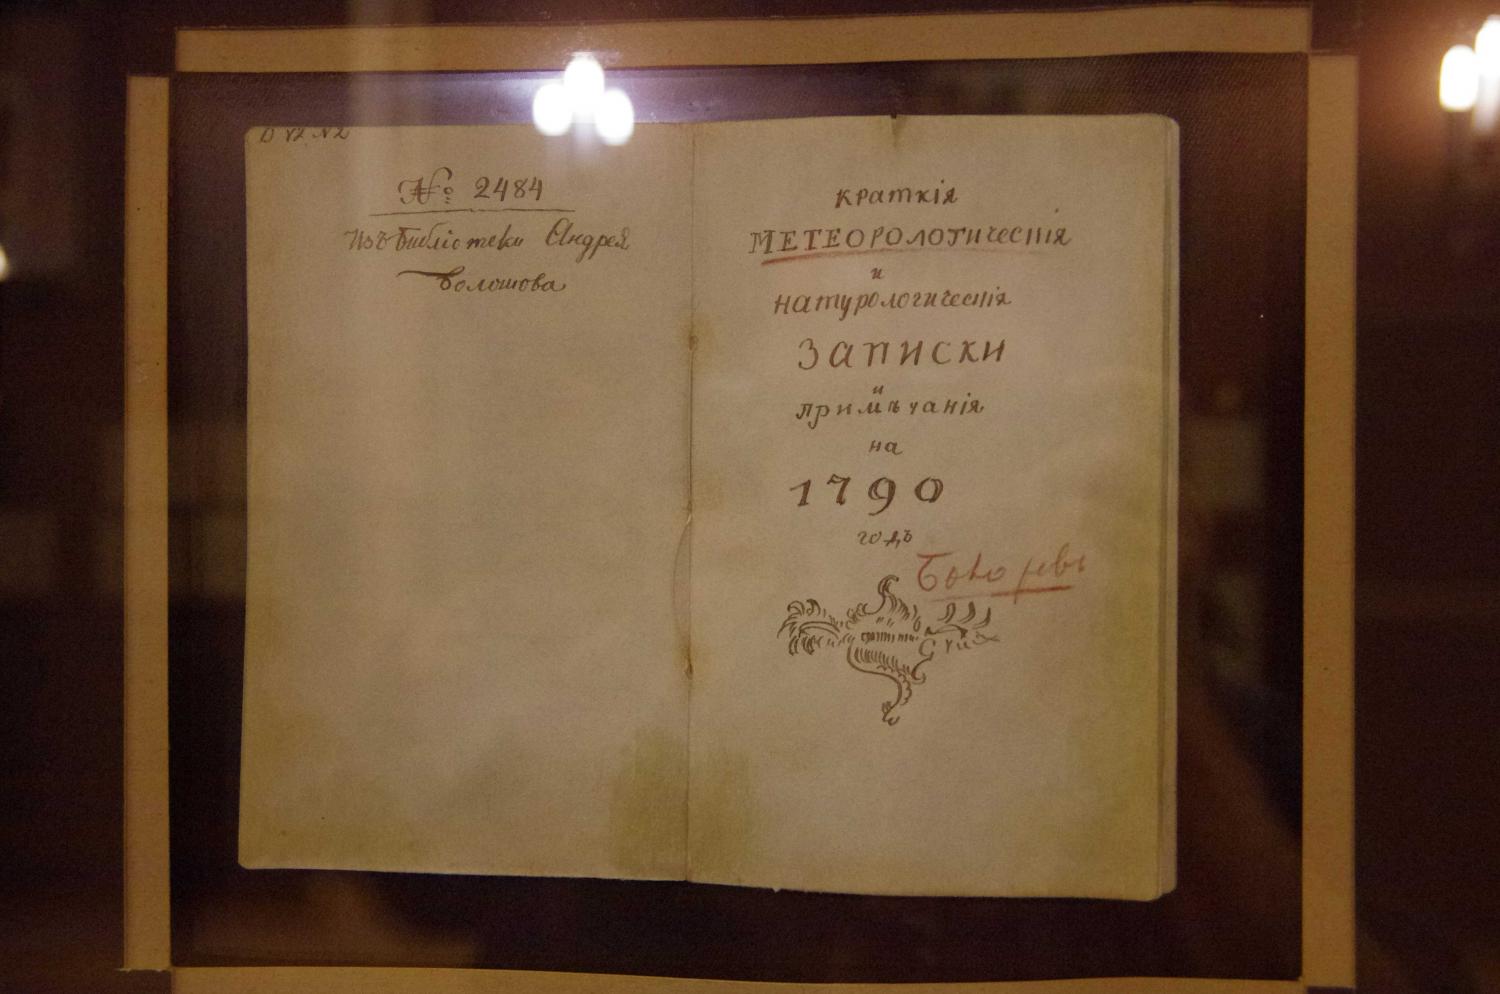 № 2484
Изъ Библіотеки Андрея
Болотова
краткія
МЕТЕОРОЛОГическія
и
натурологическія
ЗАПИСКИ
и
примѣчанія
на
1790
годъ